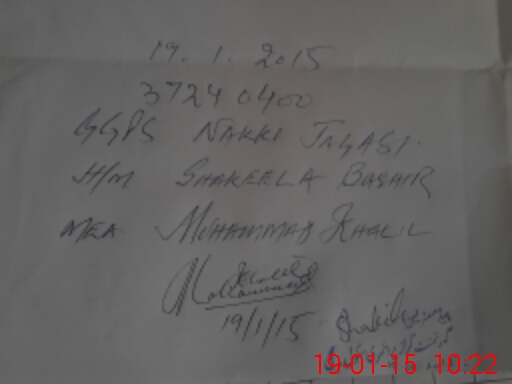 19. 1. 2015
37240400
GGPS NAKKI JAGASI.
H/M SHAKEELA BASHIR
MEA. MUHAMMAD KHALIL
19/1/15
19-01-15 10:22